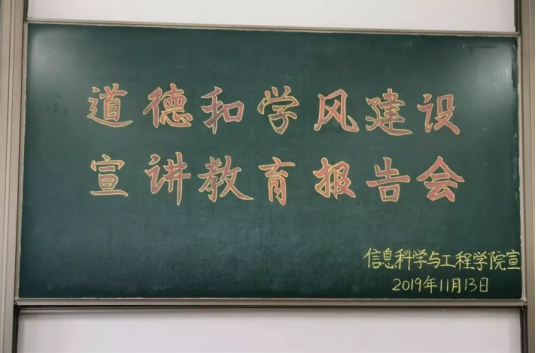 道德和学风建设
宣讲教育报告会
信息科学与工程学院宣
2019年11月13日